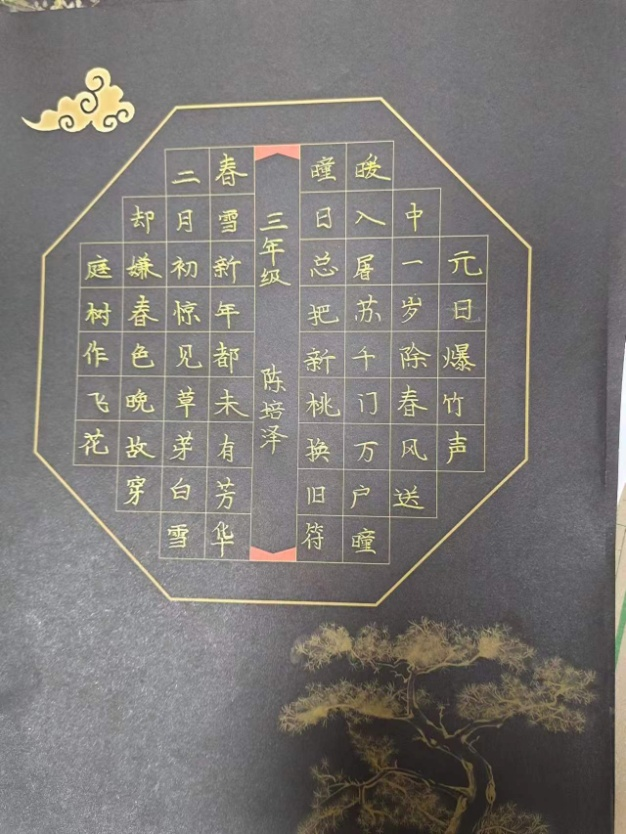 元日爆竹声
中一岁除春风送
暖入屠苏千门万户瞳
瞳日总把新桃换旧符
三年级 陈培泽
春雪新年都未有芳华
二月初惊见草芽白雪
却嫌春色晚故穿
庭树作飞花